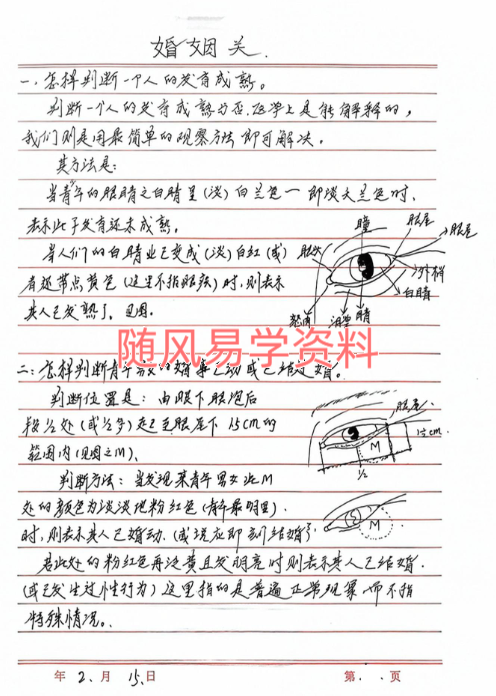 婚姻关
一、怎样判断一个人的发育成熟。
判断一个人的发育成熟与否,医学上是能解释的,
我们则是用最简单的观察方法即可解决。
其方法是:
当青年的眼睛之白睛呈(淡)白兰色一即淡天兰色时,
表示此子发育还未成熟。
当人们的白睛业已变成(淡)白红(或)
有还带点黄色(这里不指眼球)时,则表示
其人已发熟了。见图。
瞳
眼尾
眼尾
眼头
白睛
睛
随风易学资料
二、怎样判断青年男女的婚事已动或已结过婚。
判断位置是:由眼下眼泡后
段½处(或⅓)起至眼尾下15cm的
范围内(见图之M)、
眼尾
M
½
15cm
判断方法:当发现某青年男女此M
处的颜色为淡淡地粉红色(静部最明显)
时,则表示其人已婚动.(或说应即刻结婚)
M
若此处的粉红色再泛黄且发明亮时则表示其人已结婚.
(或已发生过性行为)这里指的是普遍正常现象而不指
特殊情况。
年2.月15.日
第、、页